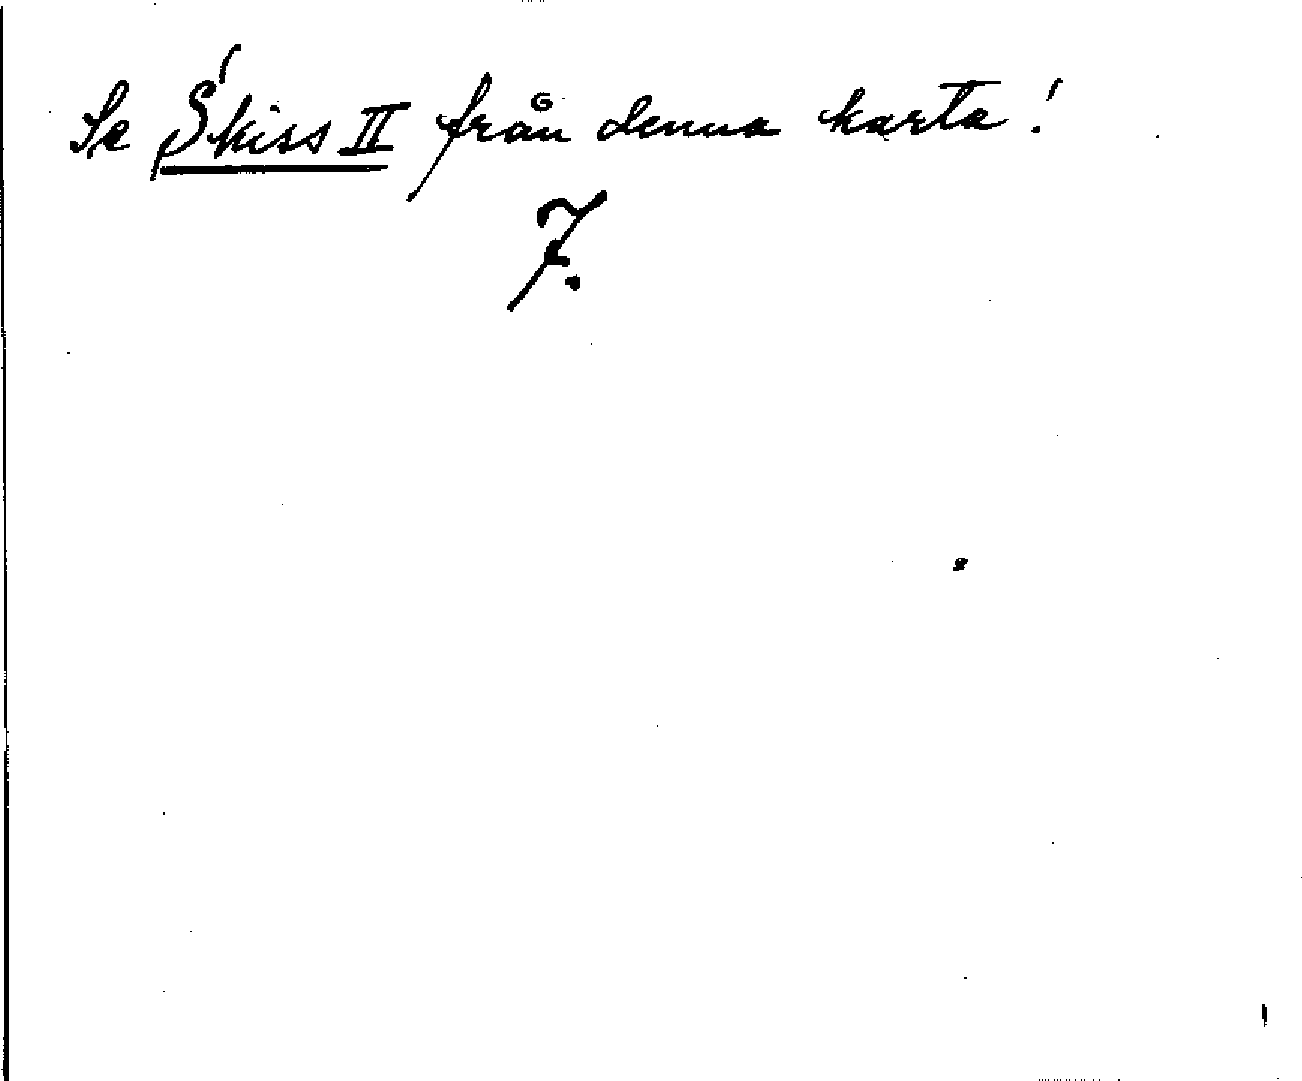 Se Skiss II från denna karta!
7.